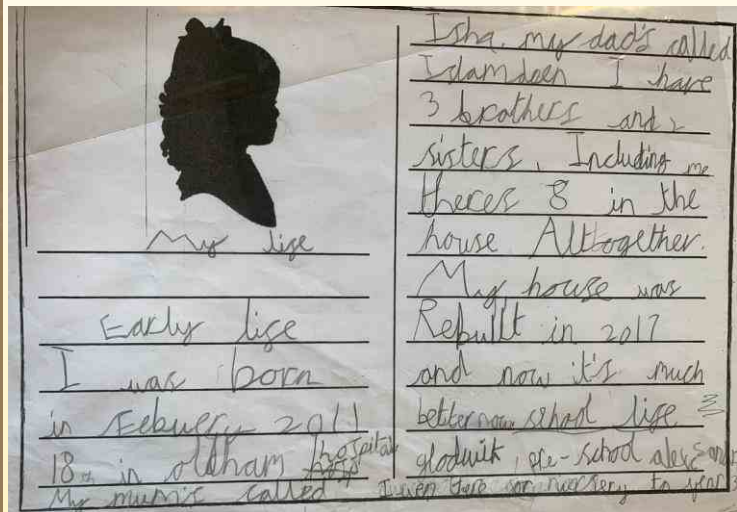 My life
Early life
I was born
in Febuery 2011
18th in oldham hospital
My mum's called
Isha, my dad's called
Islamdeen I have
3 brothers and 2
sisters. Including me
theres 8 in the
house Alltogether.
My house was
Rebuilt in 2017
and now it's much
better now school life
glodwik, pre-school alexsandr
I went there for nursery to year 3